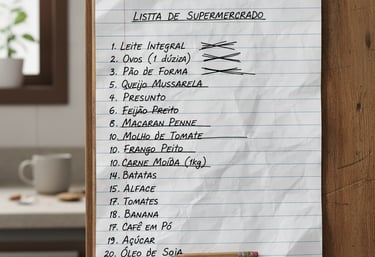 LISTTA DE SUPERMERCRADO
1. LEITE INTEGRAL
2. OVOS (1 DÚZIA)
3. PÃO DE FORMA
5. QUEIJO MUSSARELA
4. PRESUNTO
6. FEIJÃO PREITO
8. MACARAN PENNE
10. MOLHO DE TOMATE
10. FRANGO PEITO
10. CARNE MOÍDA (1kg)
14. BATATAS
15. ALFACE
17. TOMATES
18. BANANA
17. CAFÉ EM PÓ
19. AÇÚCAR
20. ÓLEO DE SOJA